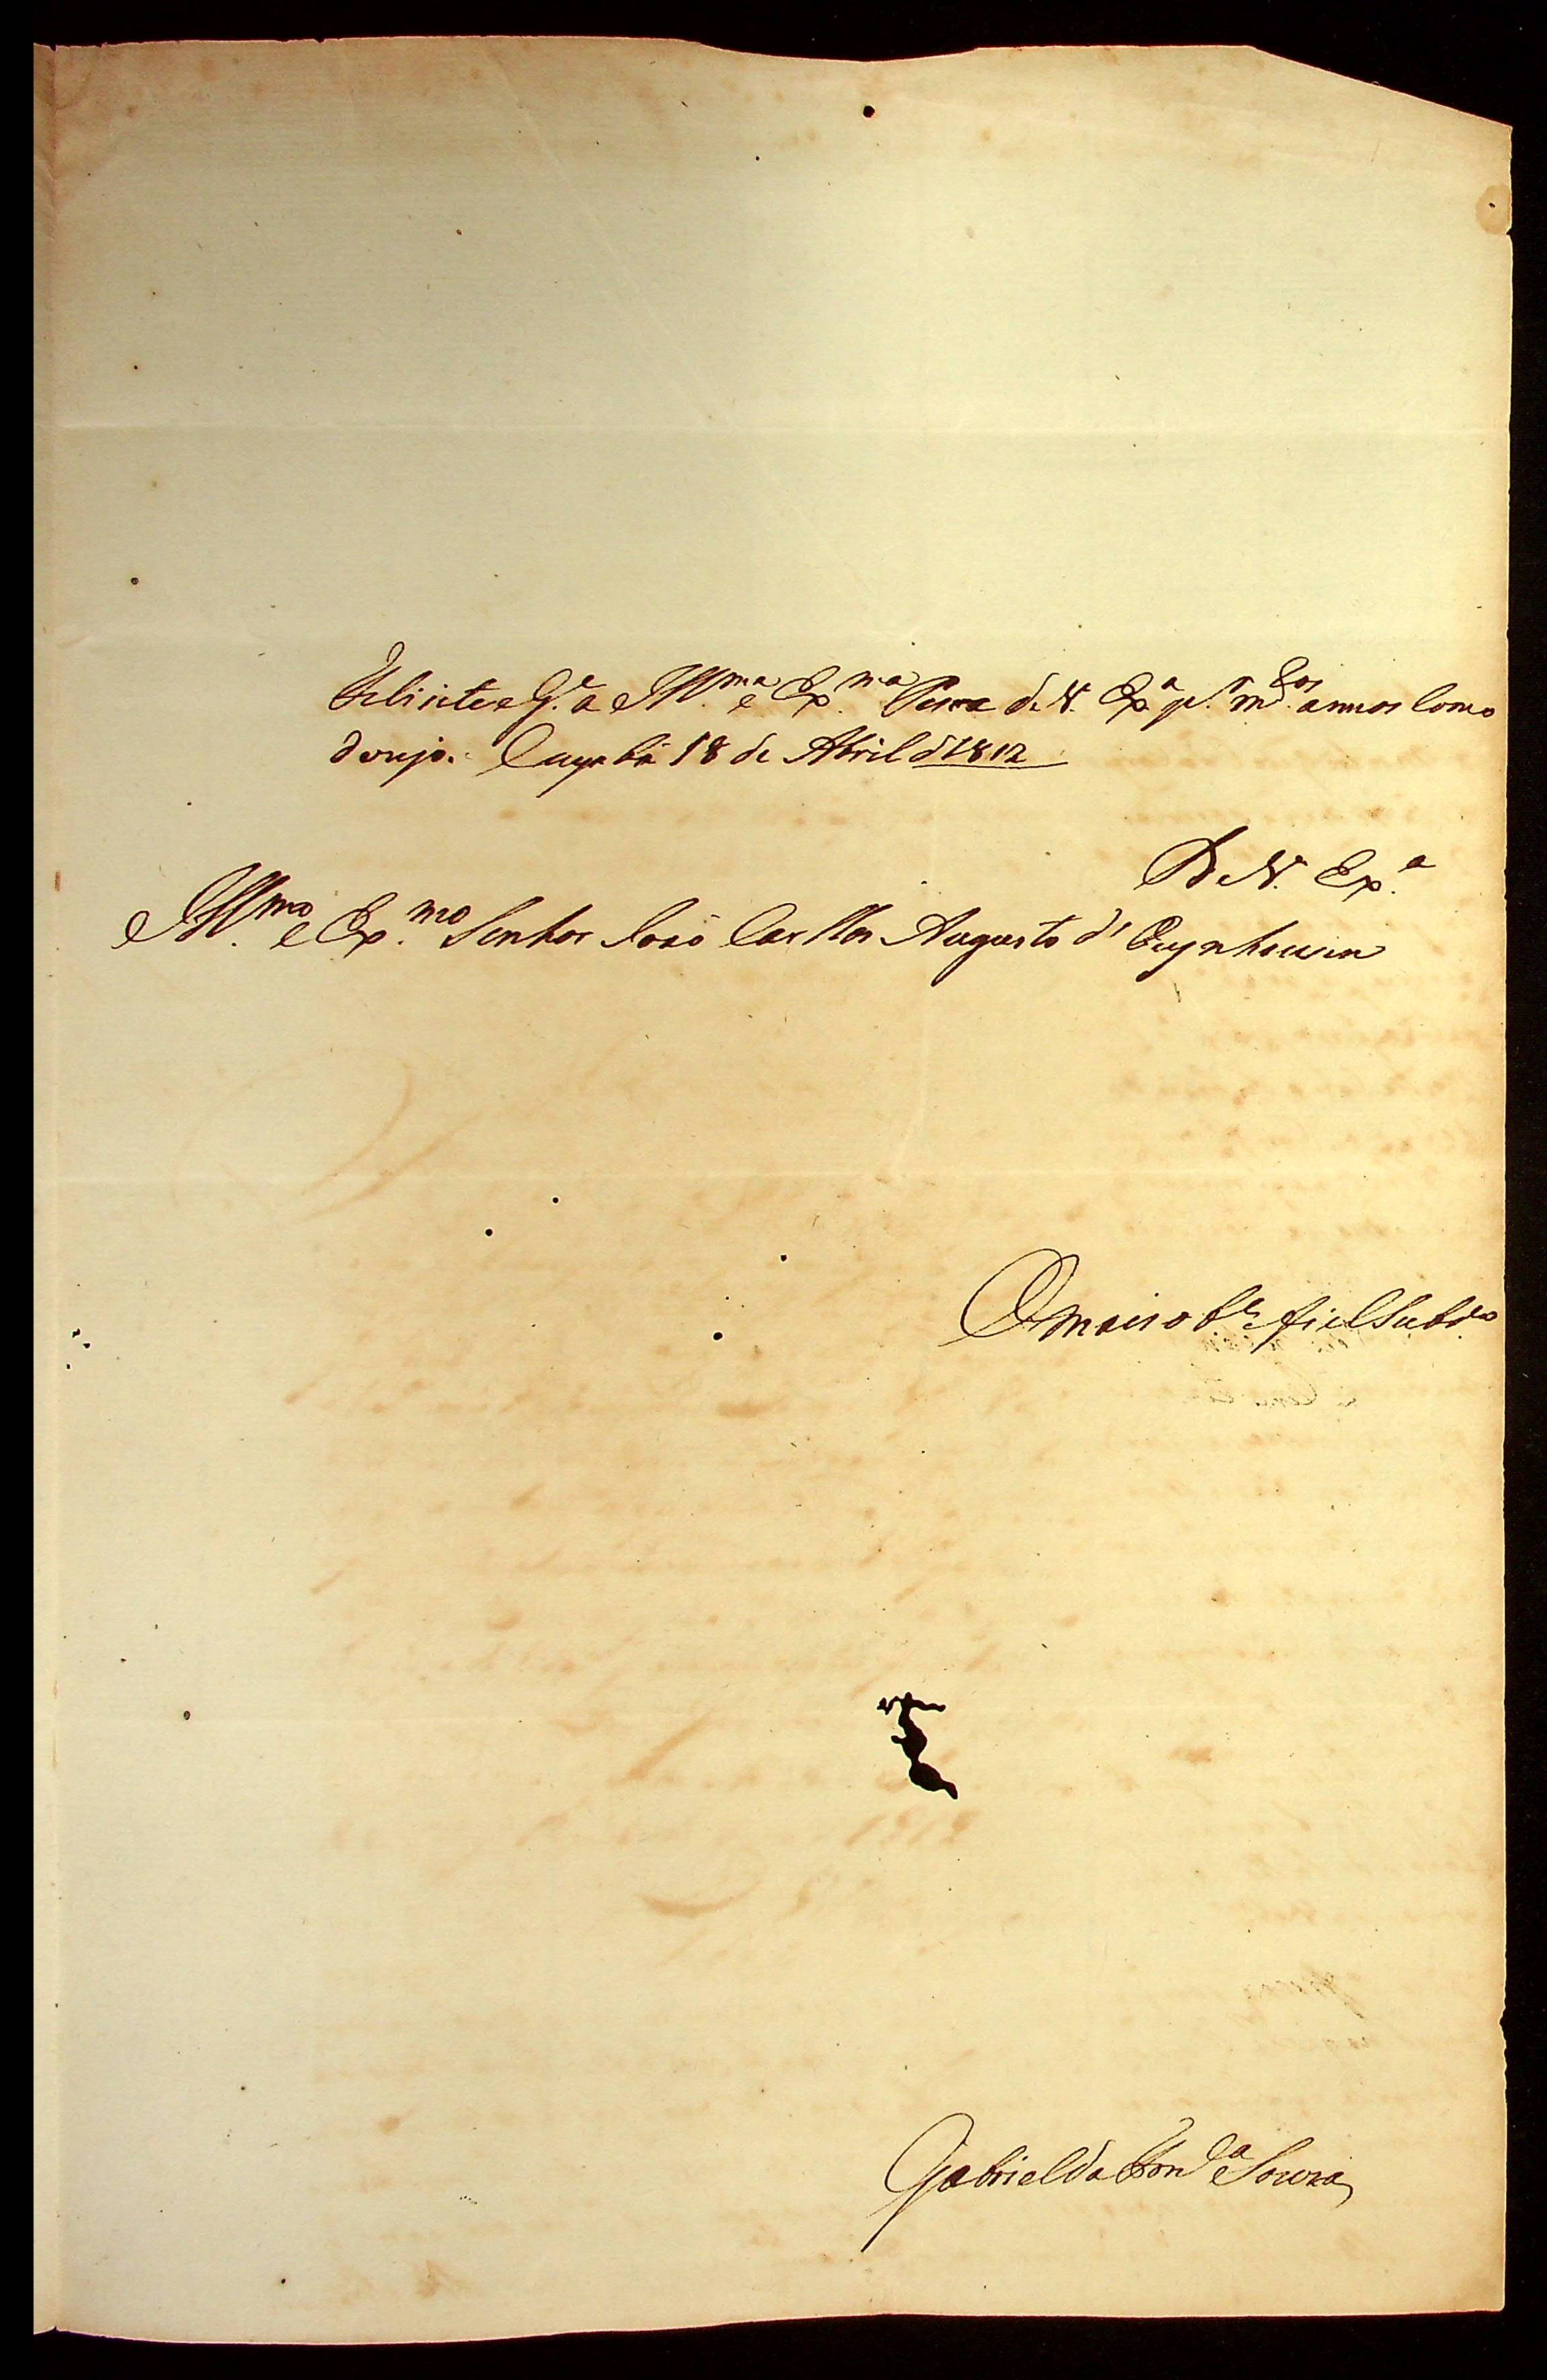 Felicite e G.e a Ill.ma e Ex.ma Pessoa de V. Ex.a p.r m.tos annos Como
dezejo. Cuyabá 18 de Abril d 1812
De V. Ex.a
Ill.mo e Ex.mo Senhor João Carllos Augusto d' Oeynhausen
O mais ob.e fiel Subd.o
Gabriel da Fon.ca e Souza